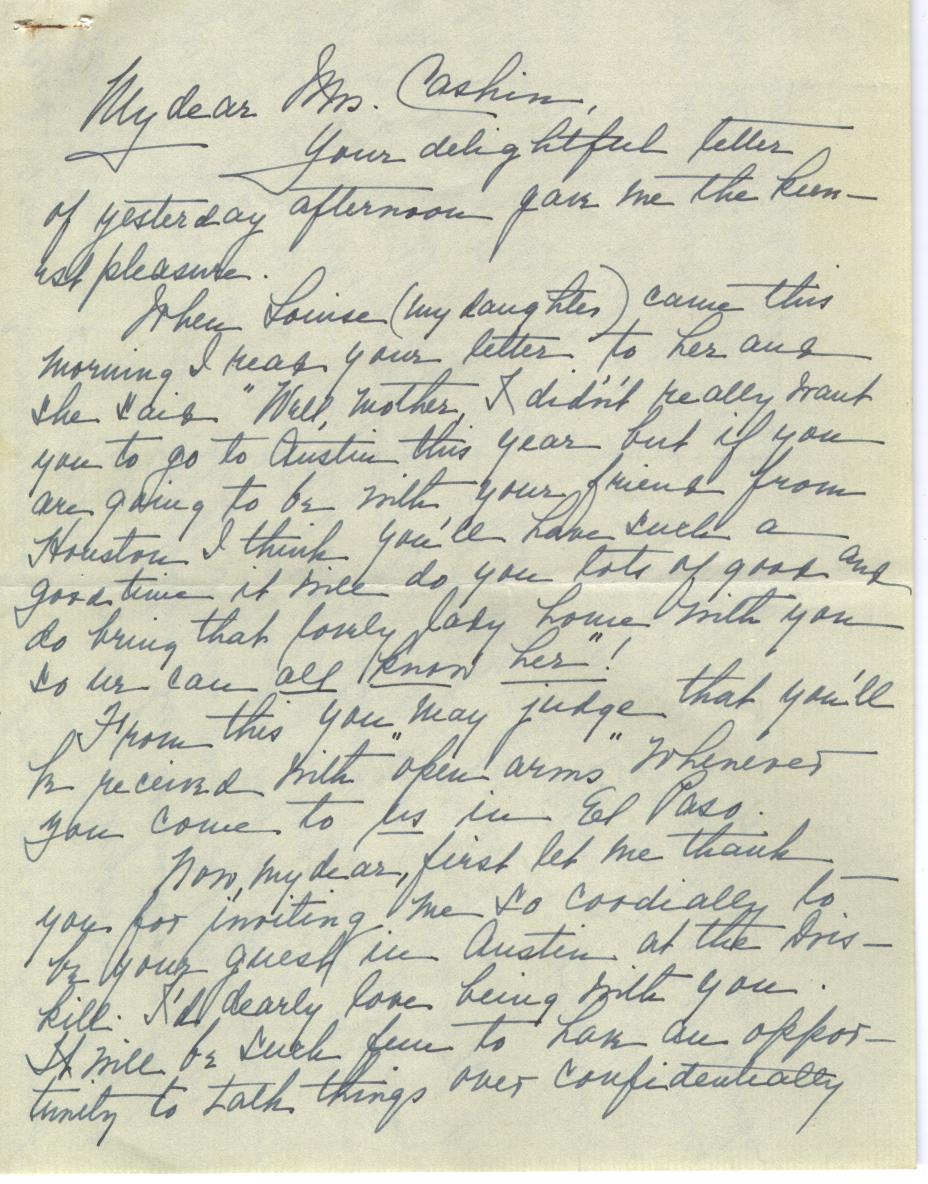 My dear Mrs. Cashin,
Your delightful letter
of yesterday afternoon gave me the keen-
est pleasure.
When Louise (my daughter) came this
morning I read your letter to her and
she said "Well, Mother, I didn't really want
you to go to Austin this year but if you
are going to be with your friend from
Houston I think you'll have such a
good time it will do you lots of good and
do bring that lovely lady home with you
so we can all know her"!
From this you may judge that you'll
be received with "open arms" whenever
you come to us in El Paso.
Now, my dear, first let me thank
you for inviting me so cordially to
be your guest in Austin at the Dris-
kill. I'd dearly love being with you.
It will be such fun to have an oppor-
tunity to talk things over confidentially